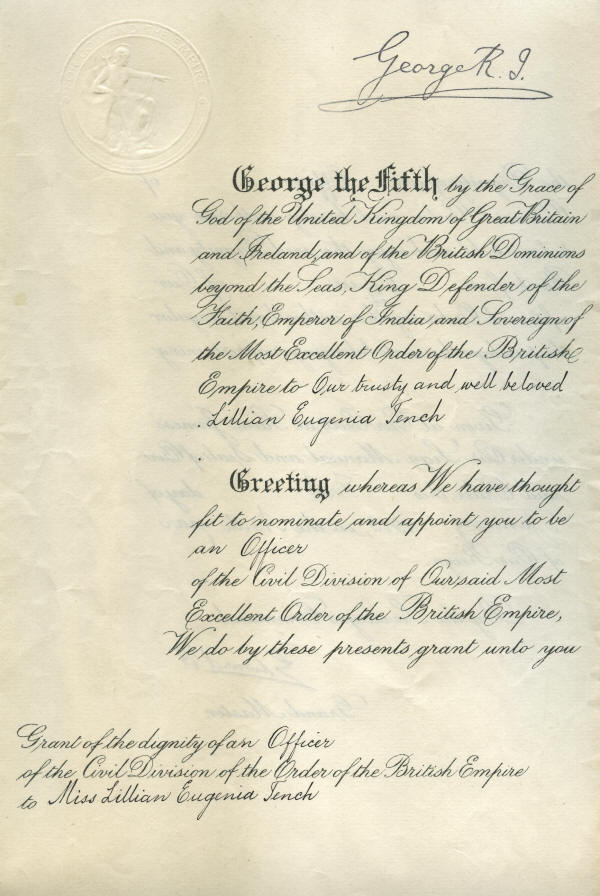 George R. I.
George the Fifth by the Grace of
God of the United Kingdom of Great Britain
and Ireland, and of the British Dominions
beyond the Seas, King Defender of the
Faith, Emperor of India, and Sovereign of
the Most Excellent Order of the British
Empire to Our trusty and well beloved
Lillian Eugenia Tench
Greeting whereas We have thought
fit to nominate and appoint you to be
an Officer
of the Civil Division of Our said Most
Excellent Order of the British Empire,
We do by these presents grant unto you
Grant of the dignity of an Officer
of the Civil Division of the Order of the British Empire
to Miss Lillian Eugenia Tench